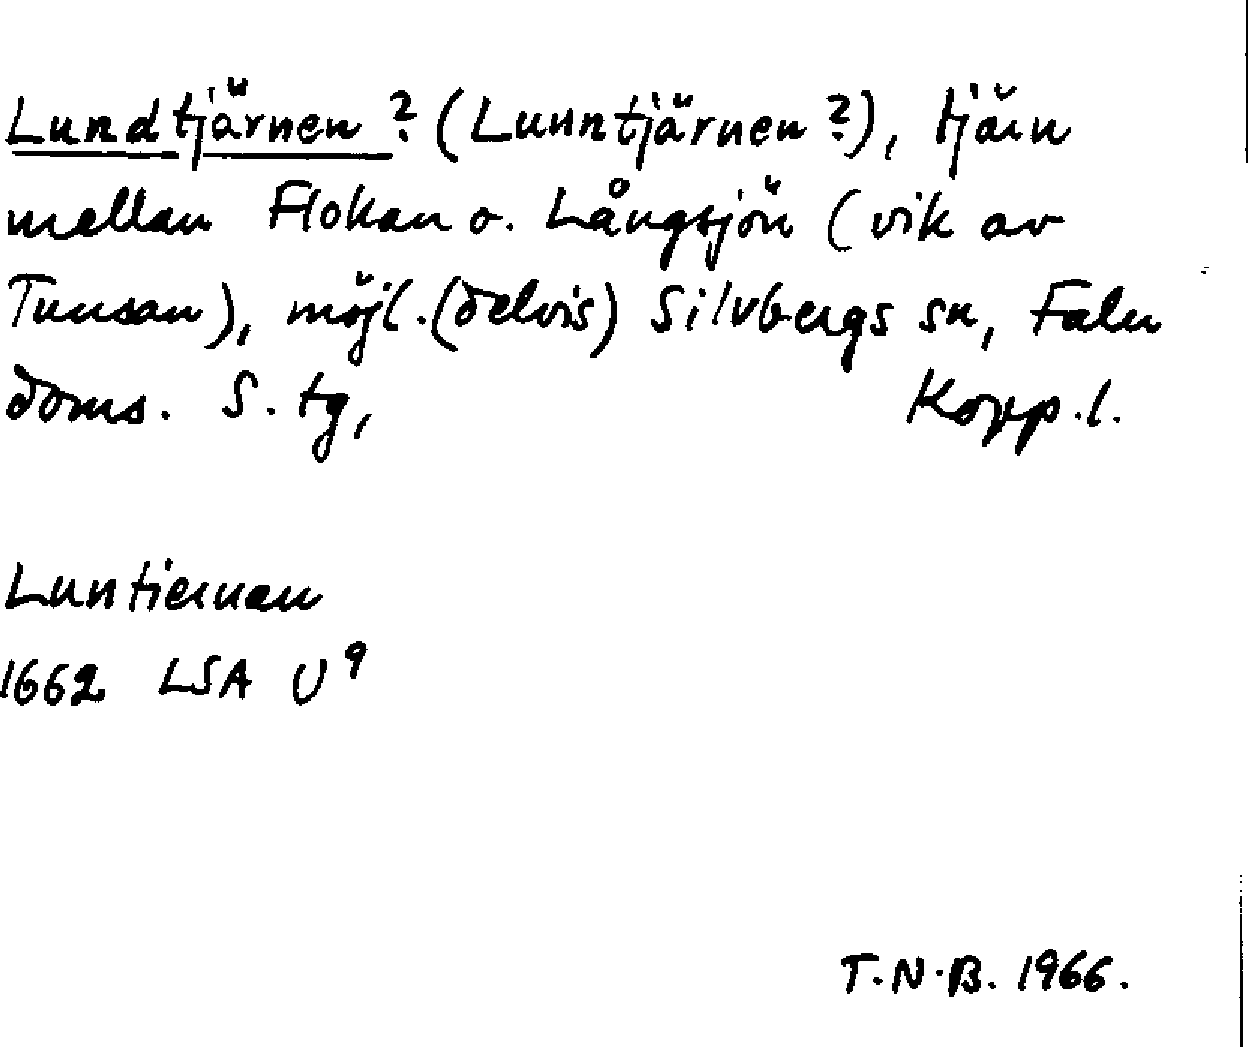 Lundtjärnen? (Lunntjärnen?), tjärn
mellan Flokan o. Långsjön (vik av
Tunsan), möjl. (delvis) Silvbergs sn, Falu
doms. S. tg, Kopp. l.
Luntiernan
1662 LSA U⁹
T.N.B. 1966.